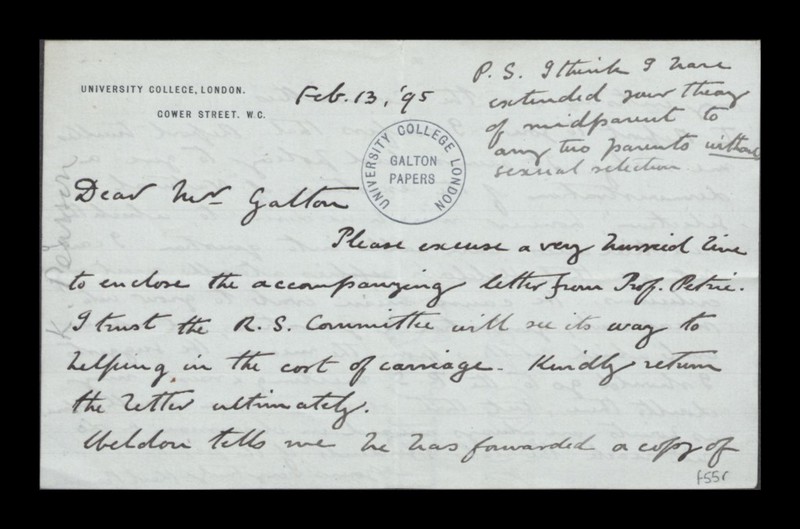 UNIVERSITY COLLEGE, LONDON.
GOWER STREET. W.C.
Feb. 13, '95
P. S. I think I have
extended your theory
of midparent to
any two parents without
sexual selection.
UNIVERSITY COLLEGE LONDON
GALTON
PAPERS
K. Pearson
Dear Mr Galton
Please excuse a very hurried line
to enclose the accompanying letter from Prof. Petrie.
I trust the R. S. Committee will see its way to
helping in the cost of carriage. Kindly return
the letter ultimately.
Weldon tells me he has forwarded a copy of
f55r